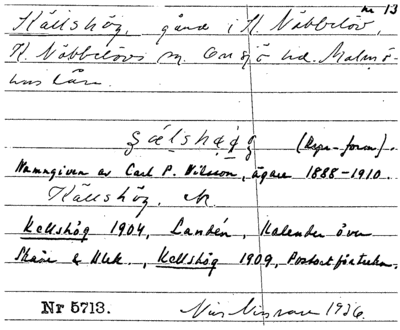 nr 13
Källshög, gård i N. Nöbbelöv,
N. Nöbbelövs sn. Onsjö hd. Malmö-
hus län.
(Rspr-form).
Namngiven av Carl P. Nilsson, ägare 1888-1910.
Källshög. N.
Kellshög 1904, Landén, Kalender över
Skåne &  , Kellshög 1909, Postortförteckn.
Nr 5713.
Nils Nilsson 1926.